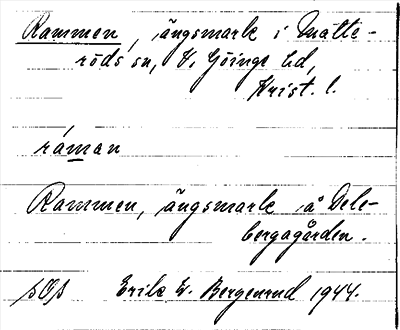 Rammen, ängsmark i Matte-
röds sn, V. Göinge hd,
Krist. l.
ráman
Rammen, ängsmark å Dele-
bergagården.
Erik W. Bergenrud 1944.